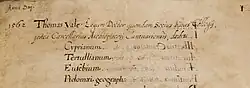 Anno Dni
1562 Thomas Vale Legum Doctor quondam Socius huius Collegij,
Cancellarius Archiepiscopi Cantuariensis, dedit
Cyprianum
Tertullianum
Eusebium
Ptolomæi geograph